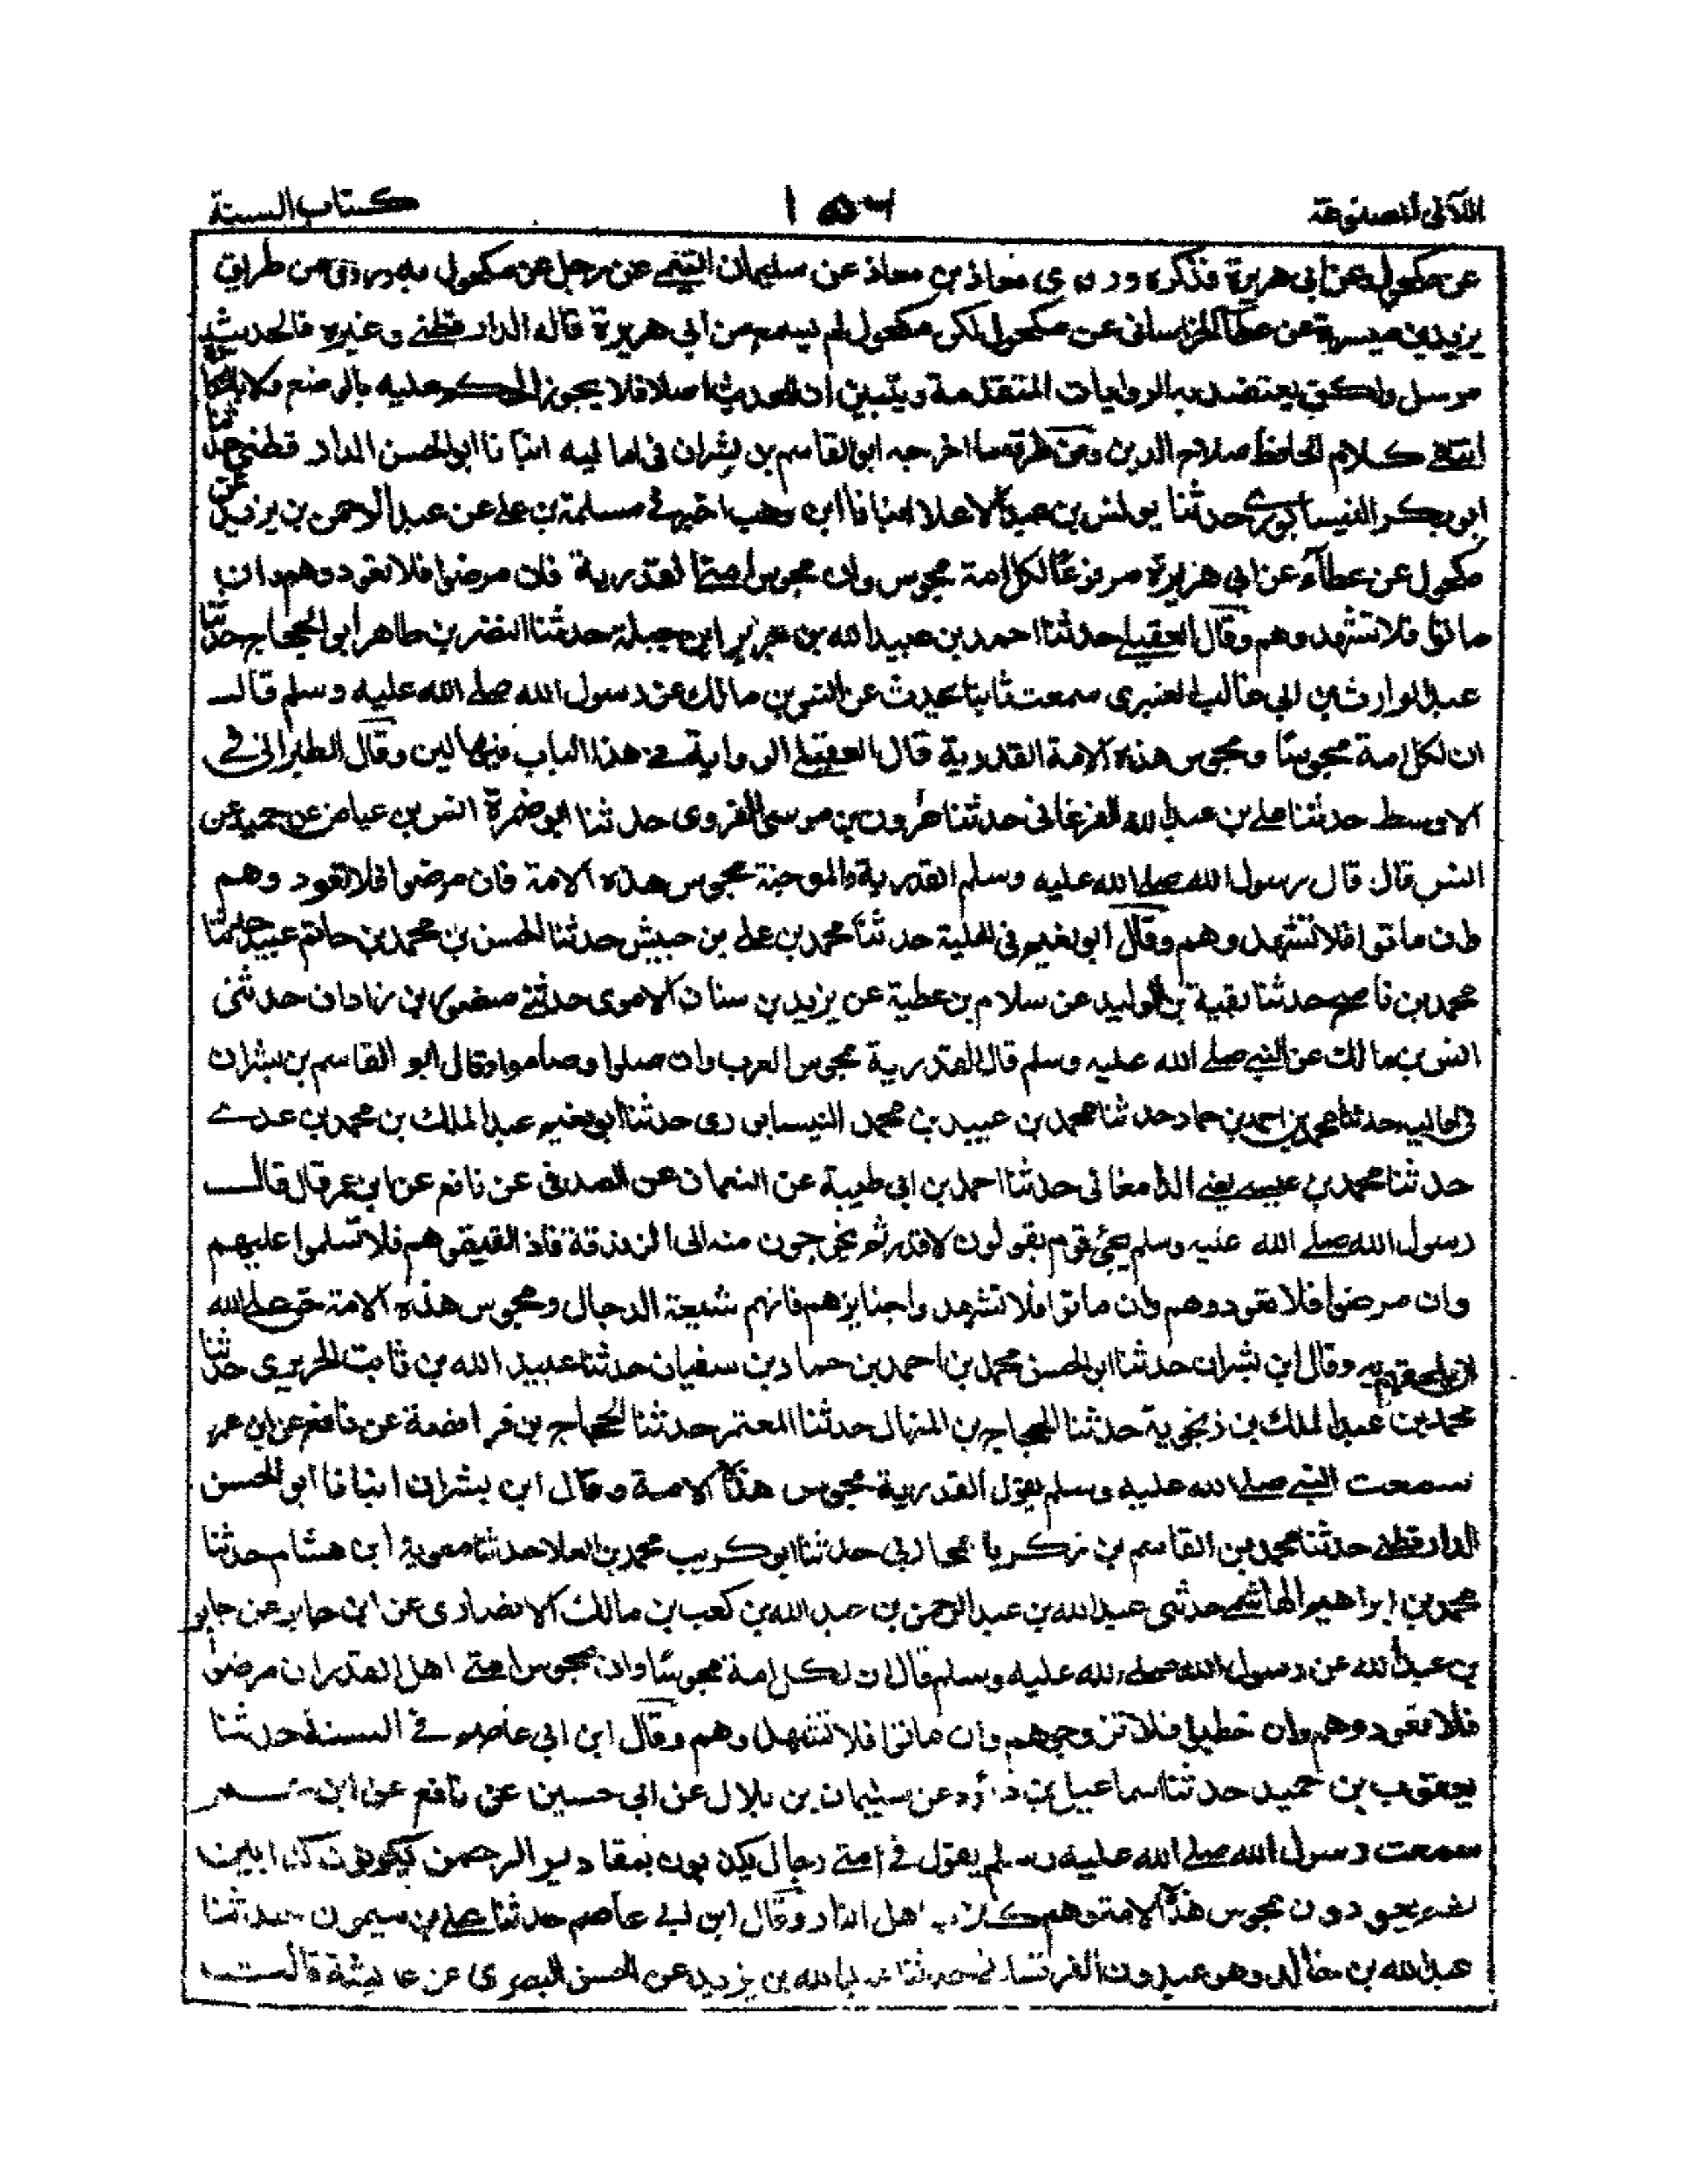 اللآلى المصنوعة
كتاب السنة
عن مكحول عن ابى هريرة فذكره وروى معاذ بن معاذ عن سليمان التيمى عن رجل عن مكحول به وروى من طريق
يزيد بن ميسرة عن عطاء الخراسانى عن مكحول لكن مكحول لم يسمع من ابى هريرة قاله الدارقطنى وغيره فالحديث
مرسل ولكن يعتضد بالروايات المتقدمة ويتبين ان للحديث اصلا فلا يجوز الحكم عليه بالوضع ولا بالنكارة
انتهى كلام الحافظ صلاح الدين ومن طرقه ما اخرجه ابو القاسم بن بشران فى اماليه انبأنا ابو الحسن الدارقطنى حدثنا
ابو بكر النيسابورى حدثنا يونس بن عبد الاعلا انبانا ابن وهب اخبرنى مسلمة بن على عن عبد الرحمن بن يزيد عن
مكحول عن عطاء عن ابى هريرة مرفوعا لكل امة مجوس وان مجوس امتى القدرية فان مرضوا فلا تعودوهم وان
ماتوا فلا تشهدوهم وقال العقيلى حدثنا احمد بن عبيد الله بن جرير ابن جبلة حدثنا النضر بن طاهر ابو الحجاج حدثنا
عبد الوارث بن ابى غالب العنبرى سمعت ثابتا يحدث عن انس بن مالك عن رسول الله صلى الله عليه وسلم قال
ان لكل امة مجوسًا ومجوس هذه الامة القدرية قال العقيلى الرواية فى هذا الباب فيها لين وقال الطبرانى فى
الاوسط حدثنا على بن عبد الله الفرغانى حدثنا هرون بن موسى الفروى حدثنا ابو ضمرة انس بن عياض عن حميد عن
انس قال قال رسول الله صلى الله عليه وسلم القدرية والمرجئة مجوس هذه الامة فان مرضوا فلا تعودوهم
وان ماتوا فلا تشهدوهم وقال ابو نعيم فى الحلية حدثنا محمد بن على بن حبيش حدثنا الحسن بن محمد بن حاتم عبيد حدثنا
محمد بن ناصح حدثنا بقية بن الوليد عن سلام بن عطية عن يزيد بن سنان الاموى حدثنى منصور بن زاذان حدثنى
انس بن مالك عن النبى صلى الله عليه وسلم قال القدرية مجوس العرب وان صلوا وصاموا وقال ابو القاسم بن بشران
فى اماليه حدثنا محمد بن احمد بن حماد حدثنا محمد بن عبيد بن محمد النيسابورى حدثنا ابو نعيم عبد الملك بن محمد بن عدى
حدثنا محمد بن عيسى يعنى الدامغانى حدثنا احمد بن ابى طيبة عن النعمان عن الصدفى عن نافع عن ابن عمر قال قال
رسول الله صلى الله عليه وسلم يجئ قوم يقولون لا قدر ثم يخرجون منه الى الزندقة فاذا لقيتموهم فلا تسلموا عليهم
وان مرضوا فلا تعودوهم وان ماتوا فلا تشهدوا جنايزهم فانهم شيعة الدجال ومجوس هذه الامة حق على الله
ان يلحقهم به وقال ابن بشران حدثنا ابو الحسن محمد بن احمد بن حماد بن سفيان حدثنا عبيد الله بن ثابت الحريرى حدثنا
محمد بن عبد الملك بن زنجوية حدثنا الحجاج بن المنهال حدثنا المعتمر حدثنا الحجاج بن فرافصة عن نافع عن ابن عمر
سمعت النبى صلى الله عليه وسلم يقول القدرية مجوس هذه الامة وقال ابن بشران انبانا ابو الحسن
الدارقطنى حدثنا محمد بن القاسم بن زكريا المحاربى حدثنا ابو كريب محمد بن العلا حدثنا معوية ابن هشام حدثنا
محمد بن ابراهيم الهاشمى حدثنى عبد الله بن عبد الرحمن بن عبد الله بن كعب بن مالك الانصارى عن ابن جابر عن جابر
بن عبد الله عن رسول الله صلى الله عليه وسلم قال ان لكل امة مجوسًا وان مجوس امتى اهل القدر ان مرضوا
فلا تعودوهم وان خطبوا فلا تزوجوهم وان ماتوا فلا تشهدوهم وقال ابن ابى عاصم فى السنة حدثنا
يعقوب بن حميد حدثنا اسماعيل بن داؤد عن سليمان بن بلال عن ابى حسين عن نافع عن ابن عمر
سمعت رسول الله صلى الله عليه وسلم يقول فى امتى رجال يكذبون بمقادير الرحمن يكونون كذابين
ثم يعودون مجوس هذه الامة وهم كلاب اهل النار وقال ابن ابى عاصم حدثنا على بن ميمون حدثنا
عبد الله بن خالد وهو عبدون القرقسانى حدثنا عبد الله بن يزيد عن الحسن البصرى عن عايشة قالت